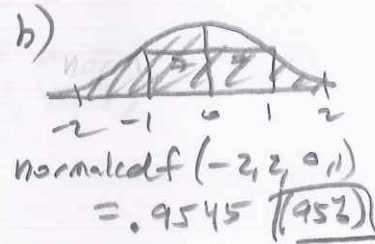 b)
-2 -1 0 1 2
normalcdf (-2, 2, 0, 1)
= .9545 (95%)